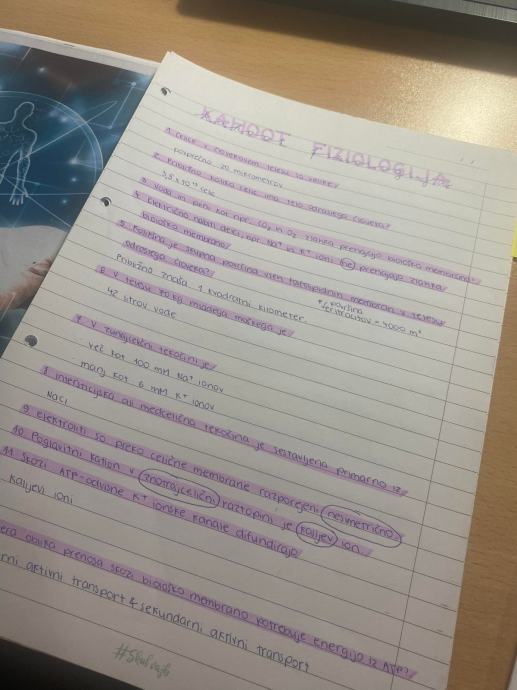 KAHOOT FIZIOLOGIJA
1. Celice v človeškem telesu so velike?
povprečno 20 mikrometrov
2. Približno koliko celic ima telo odraslega človeka?
3,5 × 10¹³ celic
3. Voda in plini kot npr. CO₂ in O₂ zlahka prehajajo biološke membrane!
4. Električno nabiti delci, npr. Na⁺ in K⁺ ioni ne prehajajo zlahka
biološke membrane!
5. Kolikšna je skupna površina vseh fosfolipidnih membran v telesu
odraslega človeka?
Približno znaša 1 kvadratni kilometer
* površina
eritrocitov = 4000 m²
6. V telesu 70 kg mladega moškega je
42 litrov vode
7. V zunajcelični tekočini je
več kot 100 mM Na⁺ ionov
manj kot 6 mM K⁺ ionov
8. Intersticijska ali medcelična tekočina je sestavljena primarno iz
NaCl
9. Elektroliti so preko celične membrane razporejeni nesimetrično.
10. Poglavitni kation v znotrajcelični raztopini je kalijev ion.
11. Skozi ATP-odvisne K⁺ ionske kanale difundirajo
kalijevi ioni
era oblika prenosa skozi biološko membrano potrebuje energijo iz ATP?
rni aktivni transport & sekundarni aktivni transport